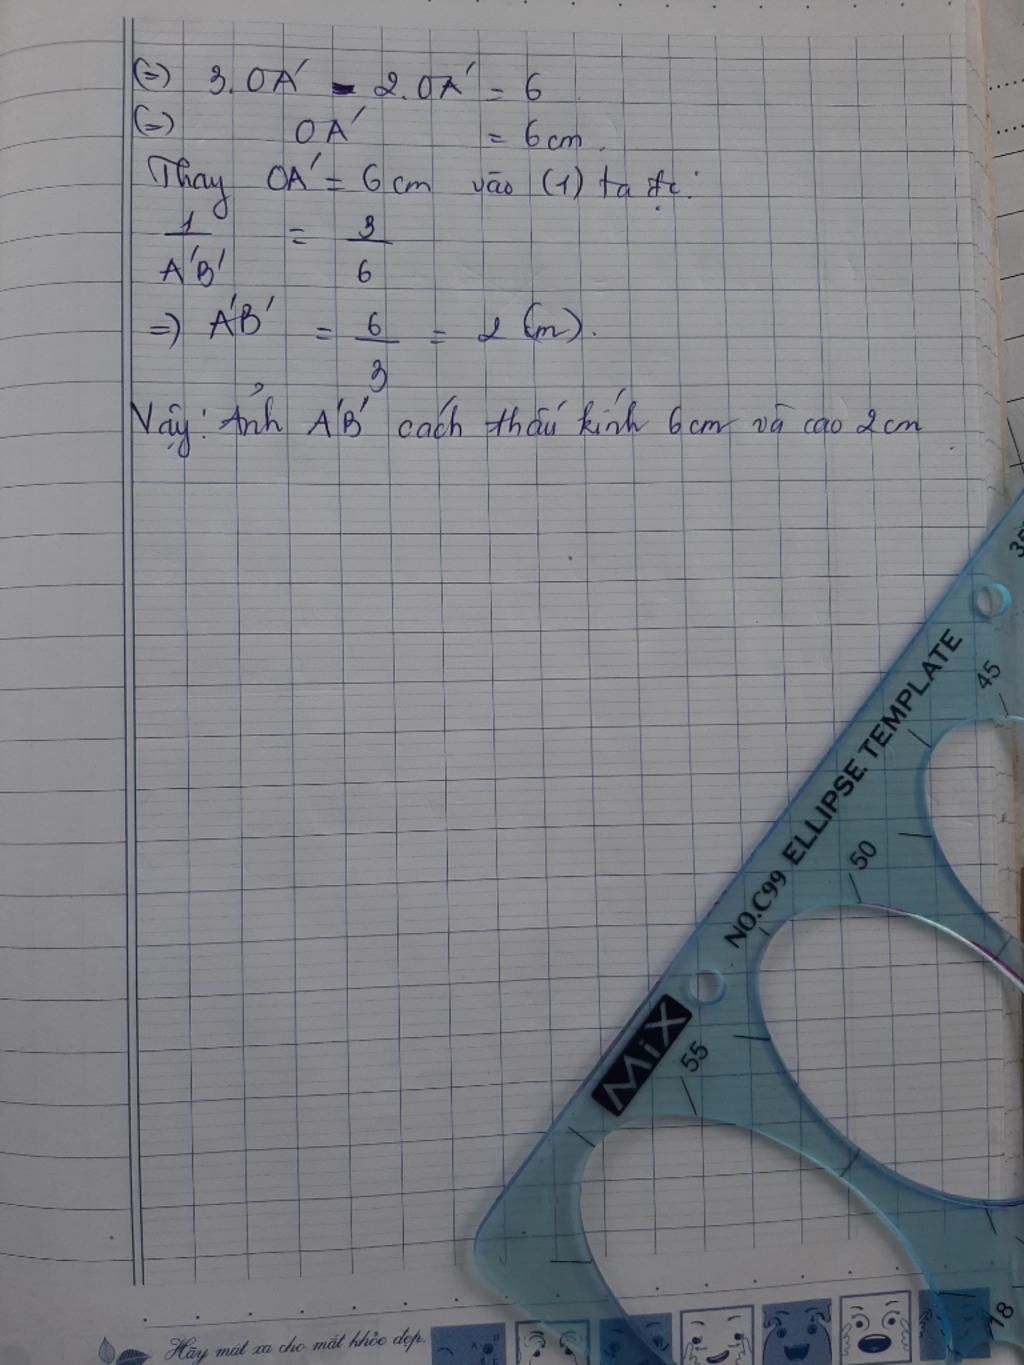 (=) 3.OA' - 2.OA' = 6
(=) OA' = 6cm.
Thay OA' = 6cm vào (1) ta đc:
1/A'B' = 3/6
=) A'B' = 6/3 = 2 (m).
Vậy: Ảnh A'B' cách thấu kính 6cm và cao 2cm
35
45
NO.C99 ELLIPSE TEMPLATE
50
MiX
55
18
Hãy mát xa cho mắt khỏe đẹp.